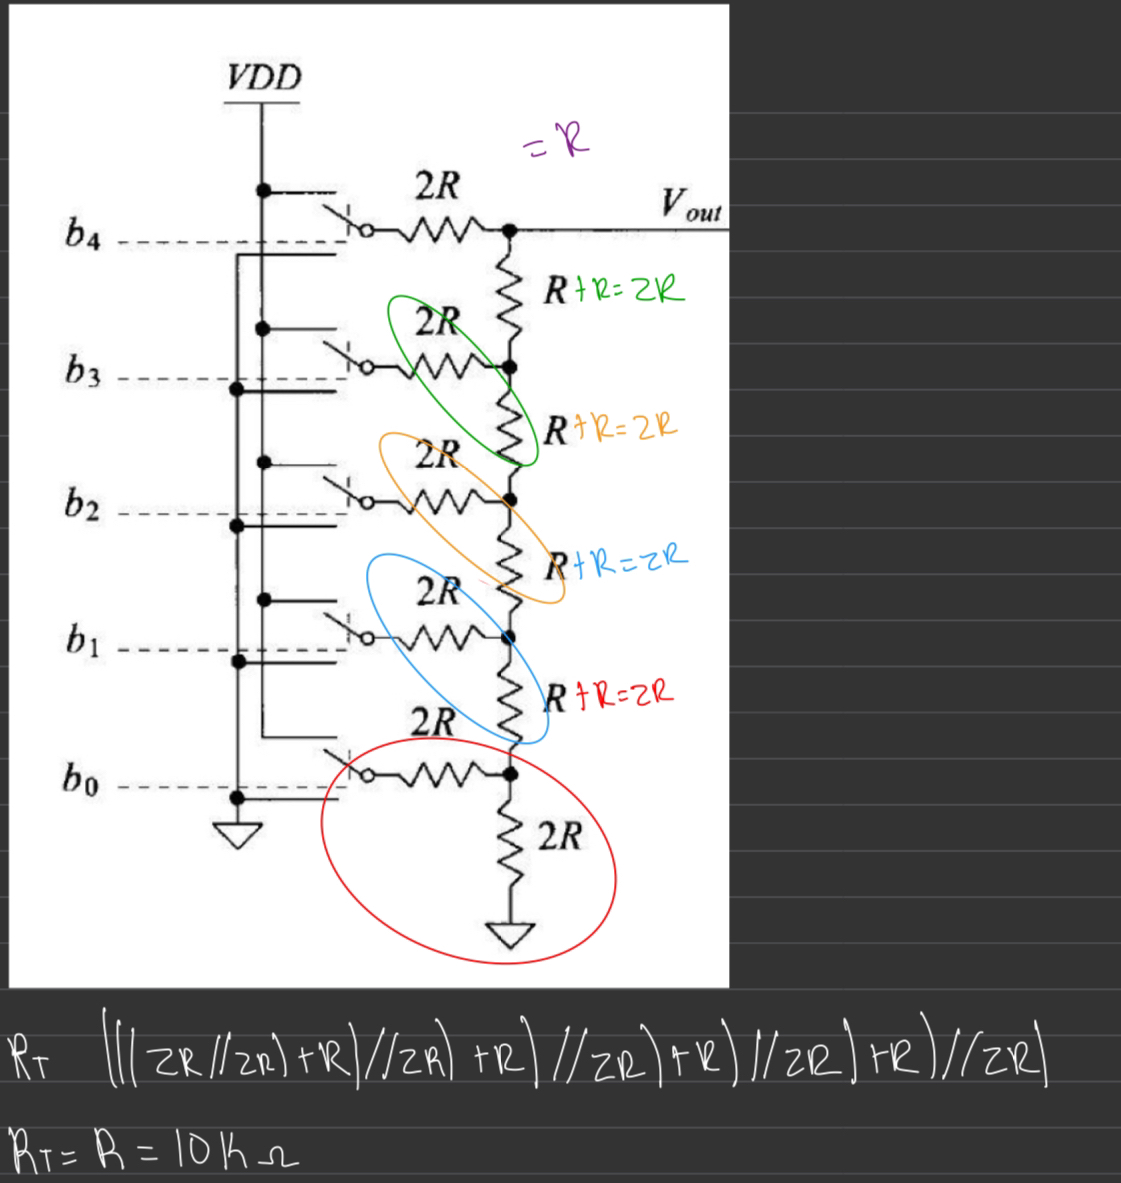 VDD
= R
2R
V_out
b_4
R +R=2R
2R
b_3
R +R=2R
2R
b_2
R +R=2R
2R
b_1
R +R=2R
2R
b_0
2R
R_T (((( 2R//2R)+R)//2R)+R)//2R)+R)//2R)+R)//2R)
R_T = R = 10KΩ